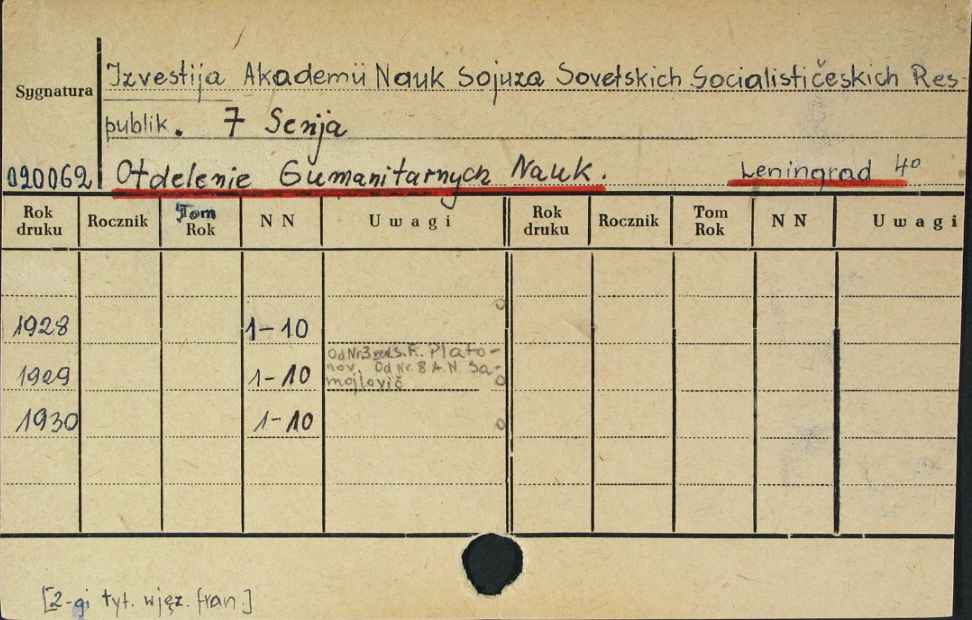 Izvestija Akademii Nauk Sojuza Sovetskich Socialističeskich Res-
Sygnatura
publik. 7 Serija
020062 Otdelenie Gumanitarnych Nauk. Leningrad 4º
Rok druku Rocznik Tom Rok N N Uwagi Rok druku Rocznik Tom Rok N N Uwagi
1928 1-10
Od Nr 3 red. S. F. Plato-
1929 1-10 nov. Od Nr. 8 A. N. Sa-
mojlovič
1930 1-10
[2-gi tyt. w jęz. fran]